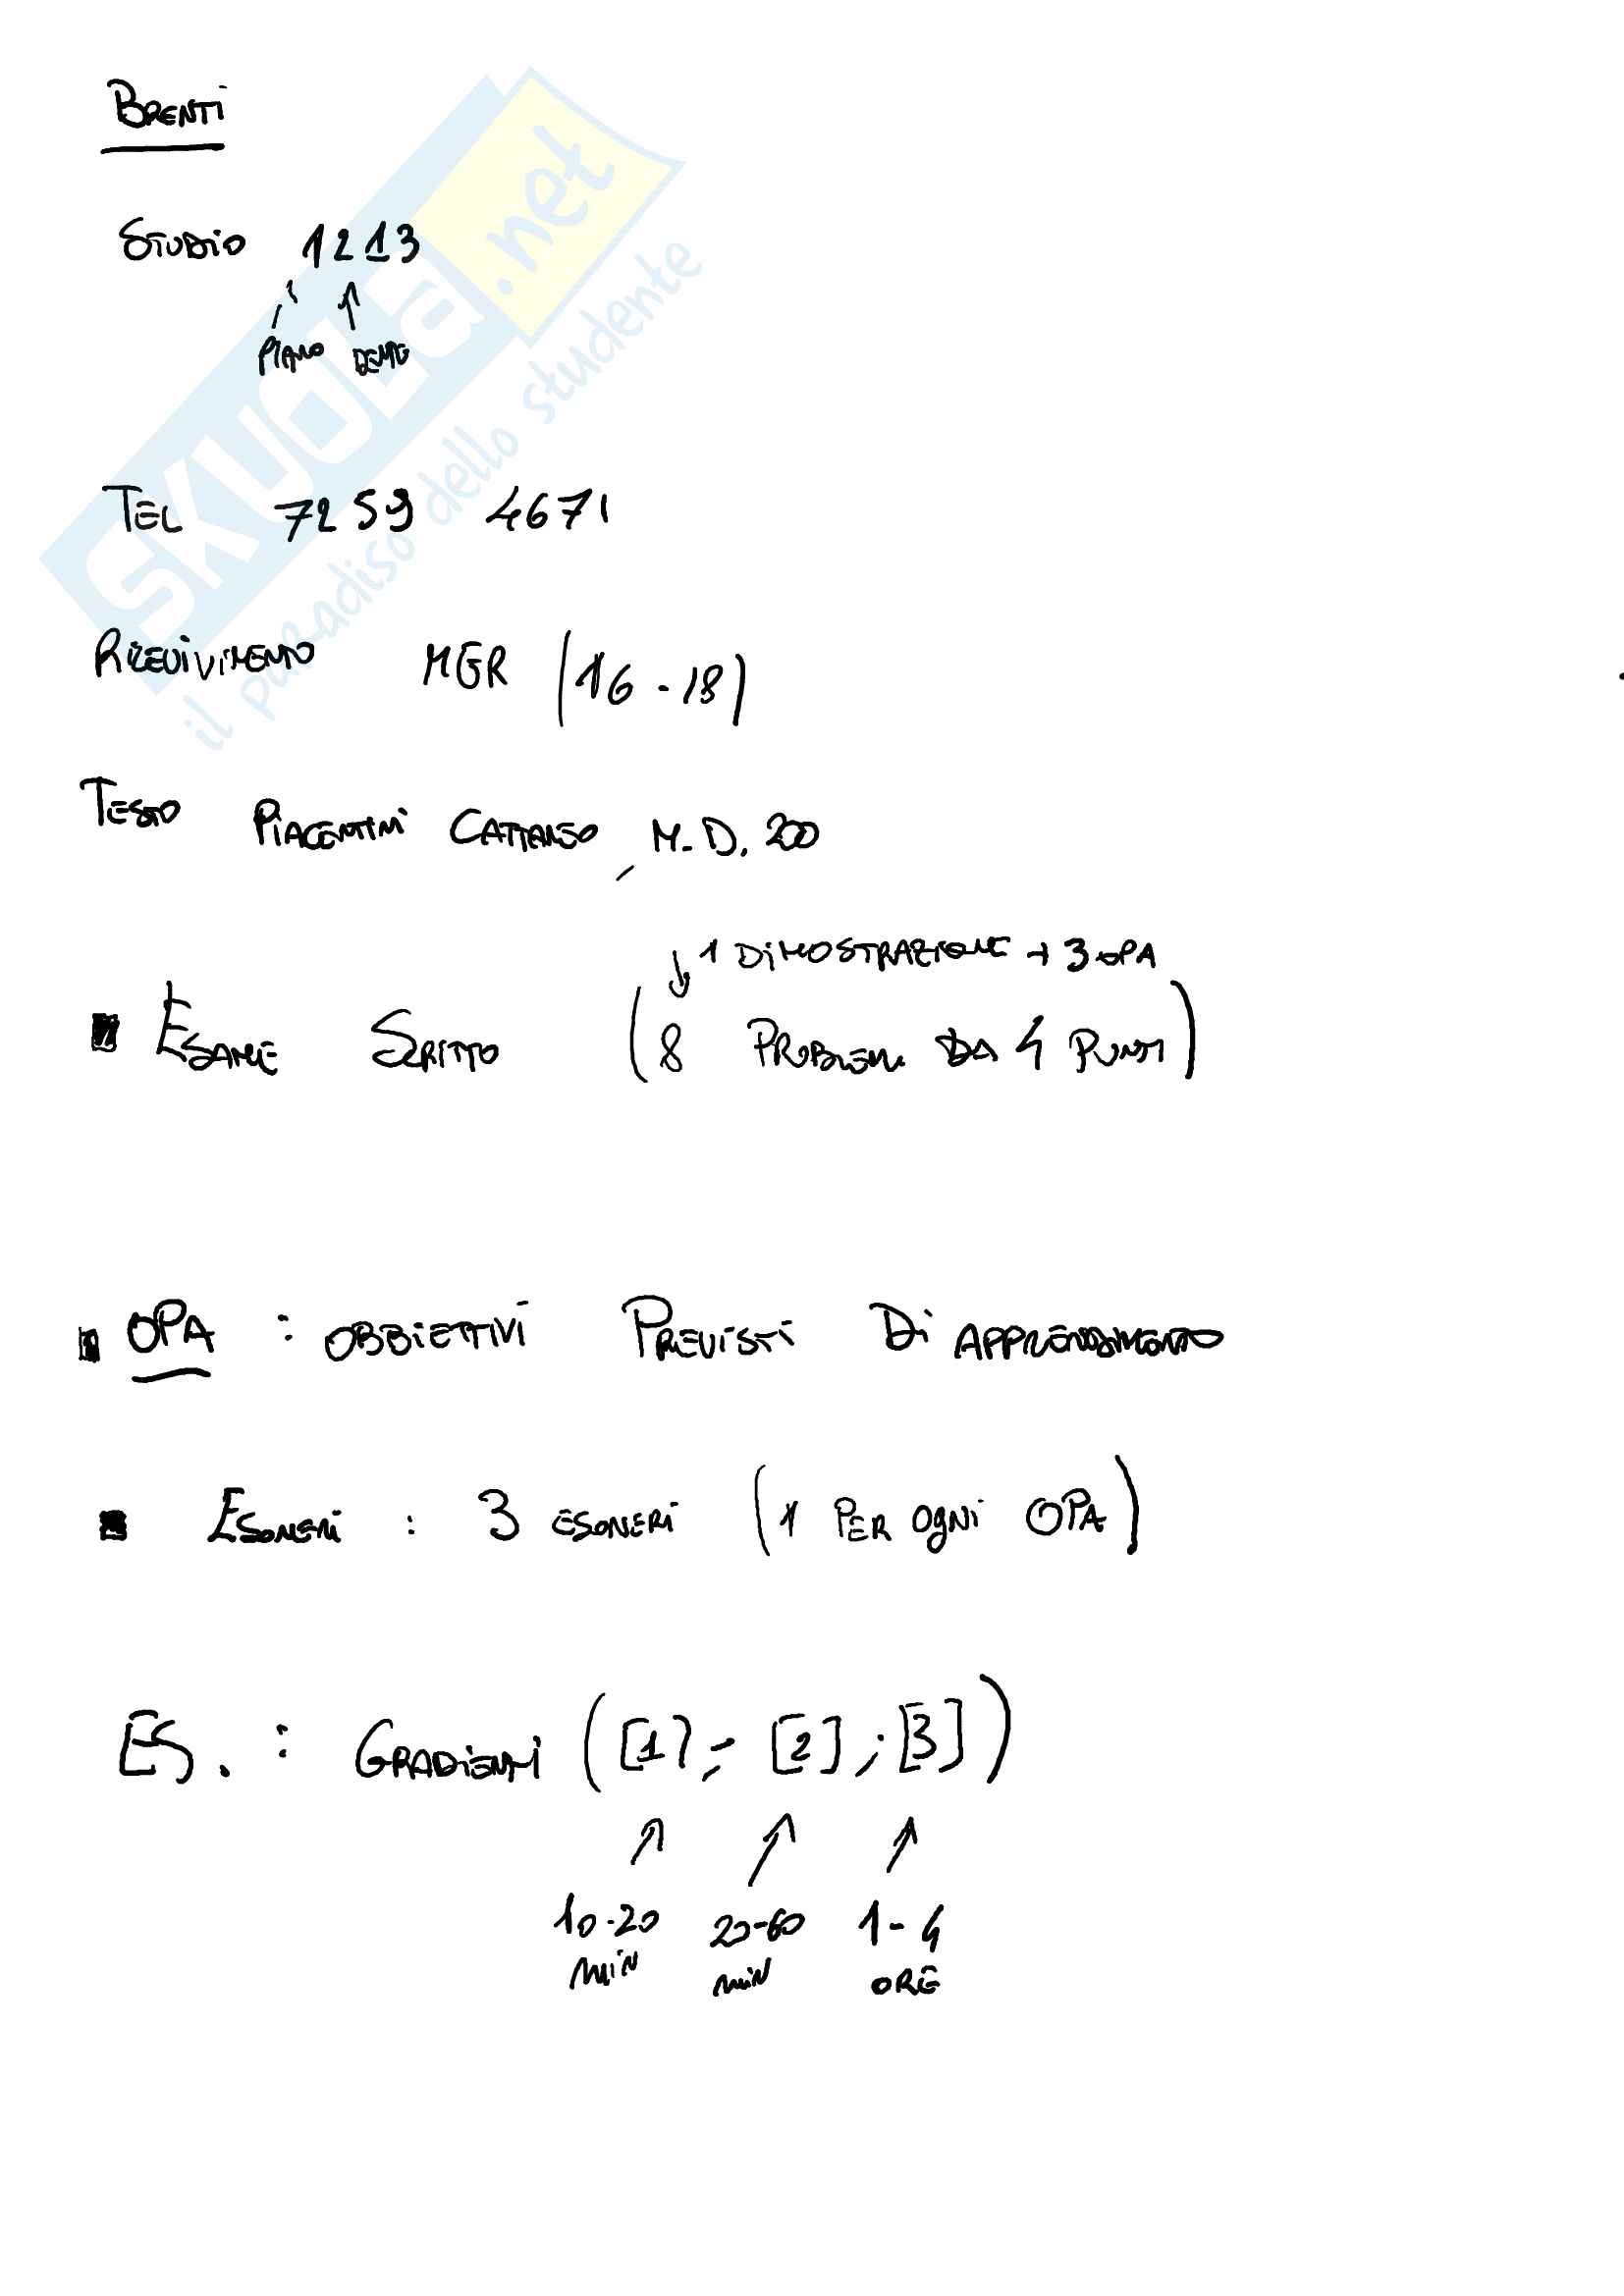 BRENTI
STUDIO 1213
PIANO DENTE
TEL 7259 4671
RICEVIVIMENTO MER (16-18)
TESTO PIACENTINI CATTANEO, M.D. 200
1 DIMOSTRAZIONE + 3 OPA
ESAME SCRITTO (8 PROBLEMI DA 4 PUNTI)
OPA : OBBIETTIVI PREVISTI DI APPRENDIMENTO
ESONERI : 3 ESONERI (1 PER OGNI OPA)
ES. : GRADIENTI ([1]; [2]; [3])
10-20 20-60 1-4
MIN MIN ORE
SKUOLA.net
il paradiso dello studente